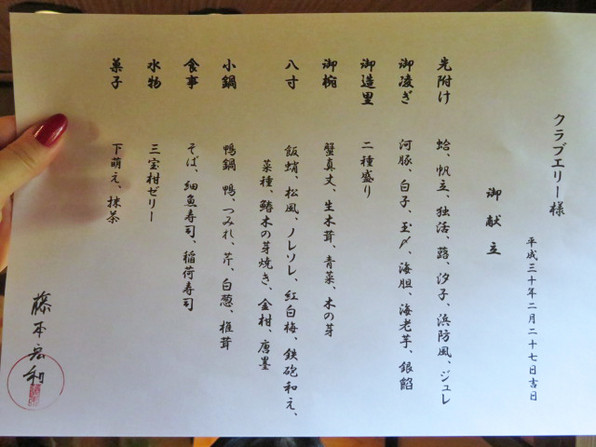 クラブエリー様
平成三十年二月二十七日吉日
御献立
先附け 蛤、帆立、独活、蕗、汐子、浜防風、ジュレ
御凌ぎ 河豚、白子、玉〆、海胆、海老芋、銀餡
御造里 二種盛り
御椀 蟹真丈、生木茸、青菜、木の芽
八寸 飯蛸、松風、ノレソレ、紅白梅、鉄砲和え、
菜種、鰆木の芽焼き、金柑、唐墨
小鍋 鴨鍋 鴨、つみれ、芹、白葱、椎茸
食事 そば、細魚寿司、稲荷寿司
水物 三宝柑ゼリー
菓子 下萌え、抹茶
藤本宏利